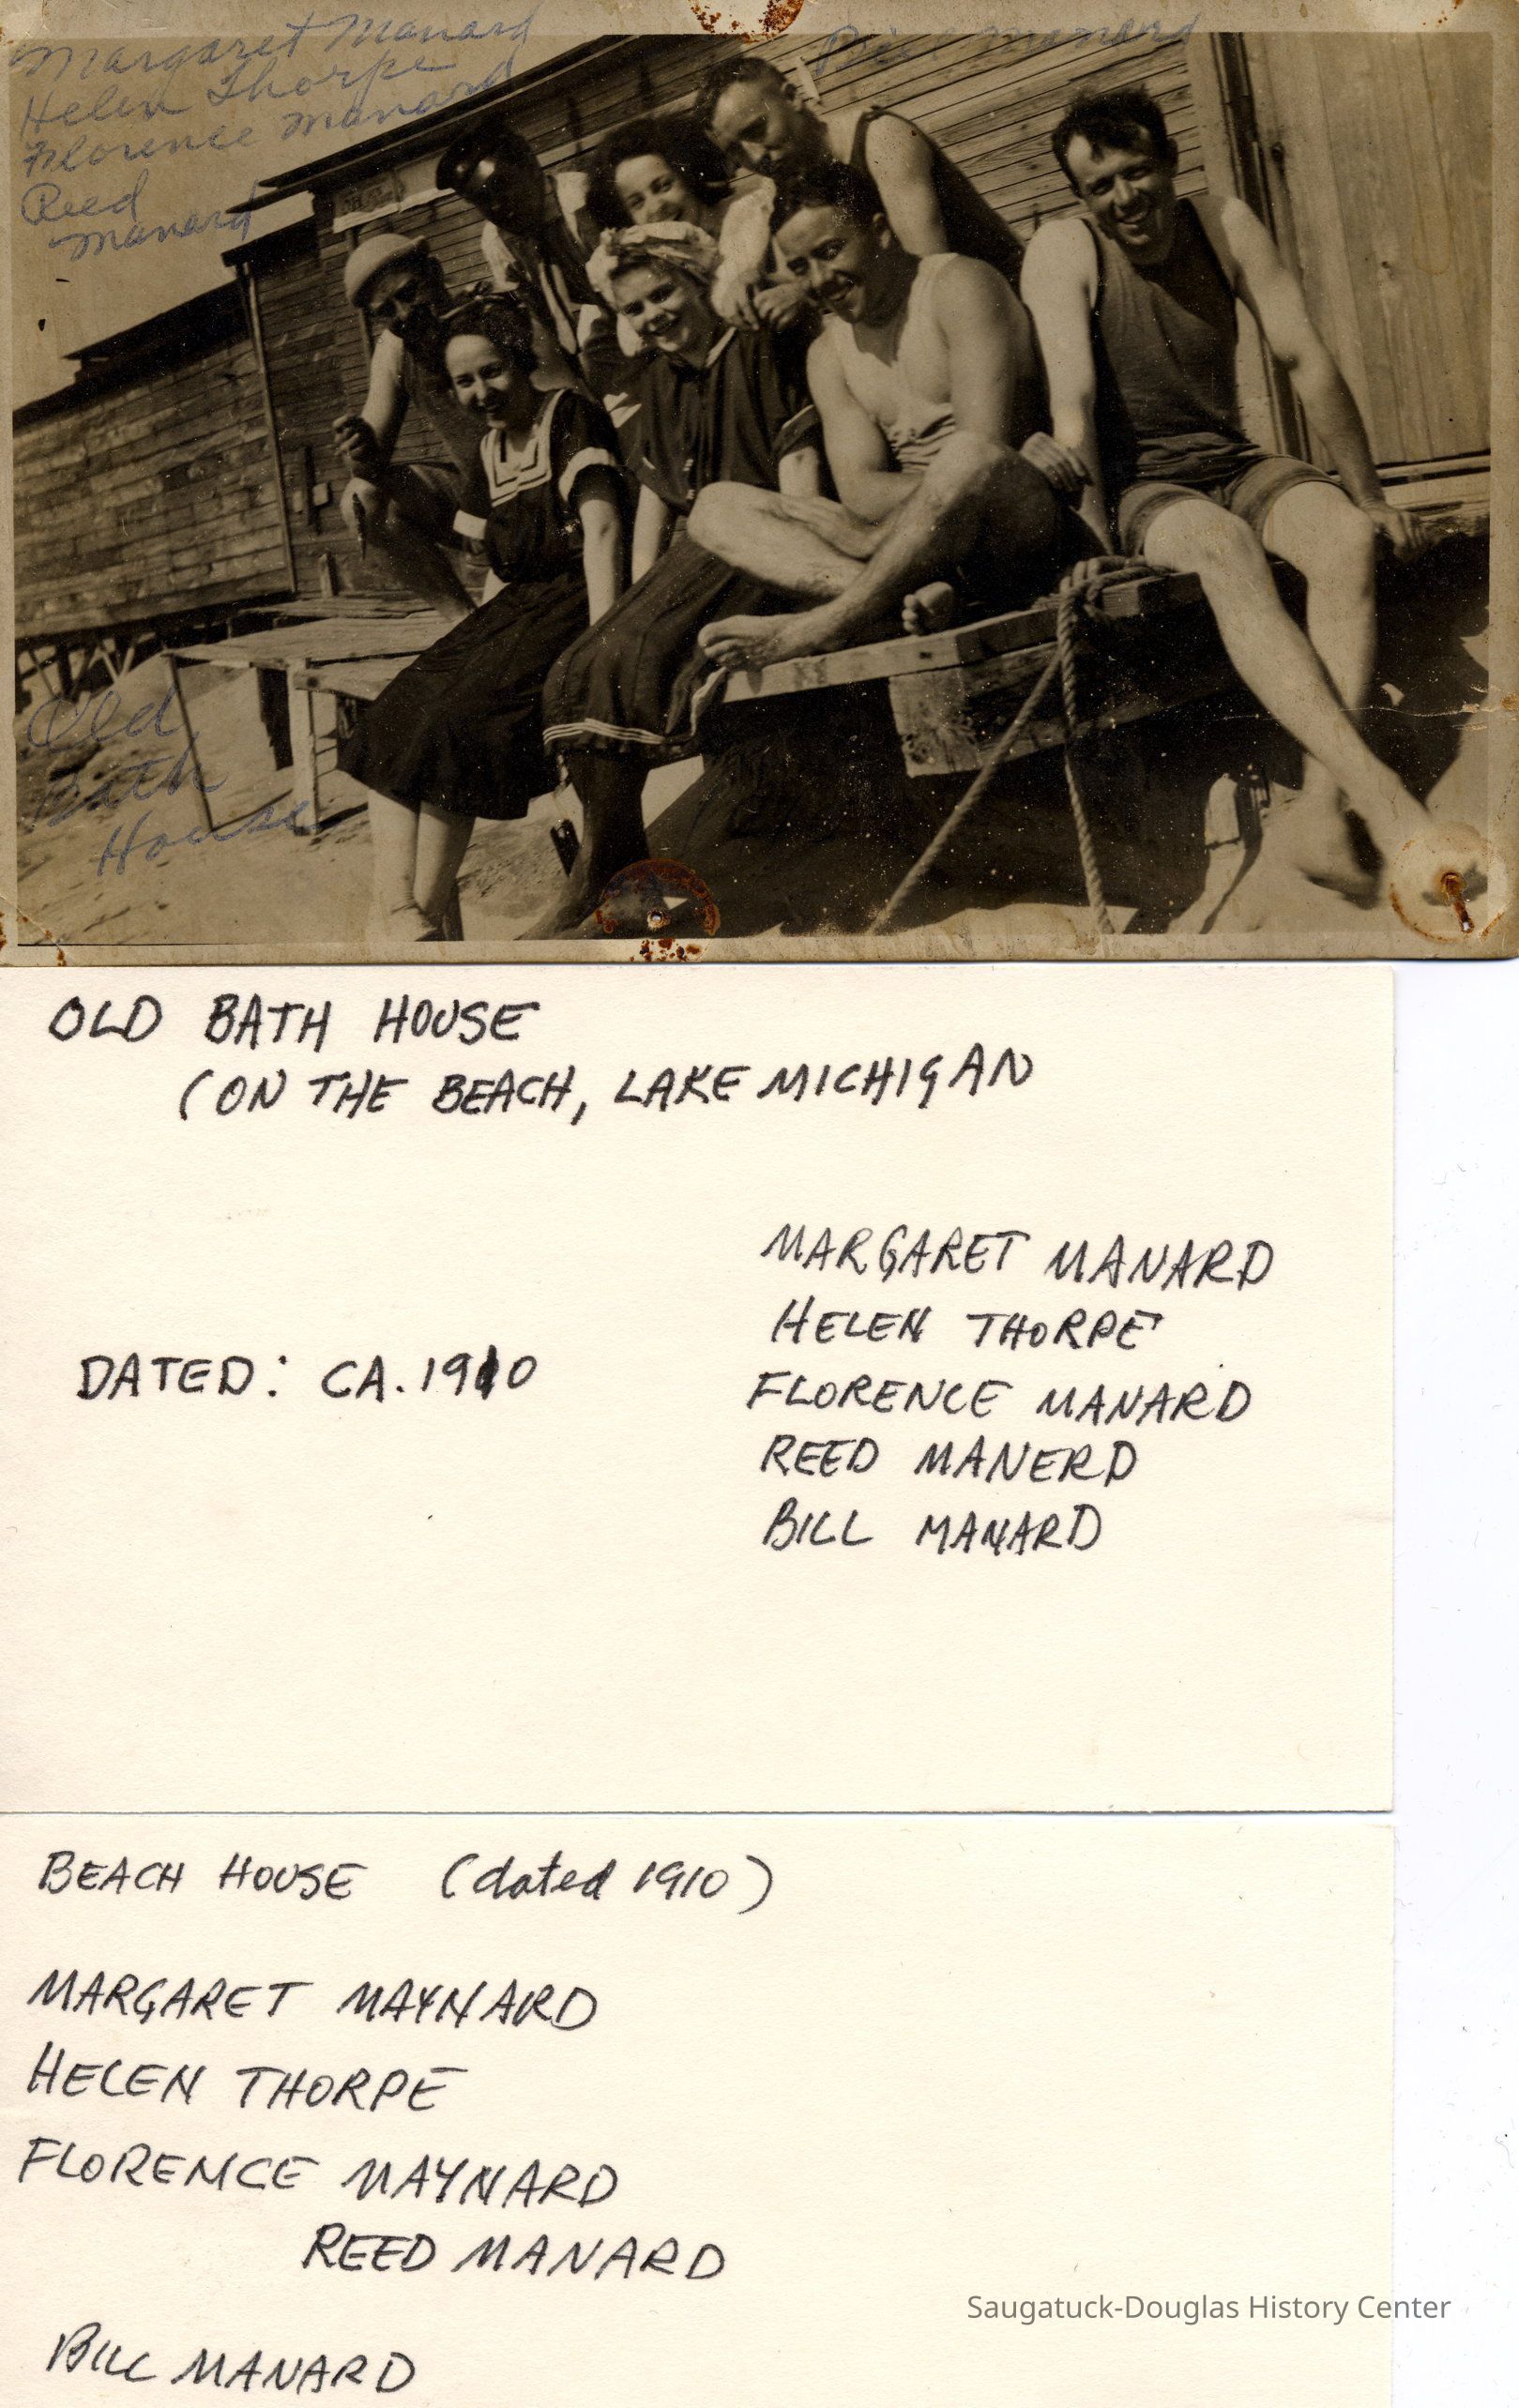 Margaret Manard
Helen Thorpe
Florence Manard
Reed
Manard
Bill Manard
Old
Bath
House
OLD BATH HOUSE
(ON THE BEACH, LAKE MICHIGAN
MARGARET MANARD
HELEN THORPE
DATED: CA. 1910
FLORENCE MANARD
REED MANERD
BILL MANARD
BEACH HOUSE (dated 1910)
MARGARET MAYNARD
HELEN THORPE
FLORENCE MAYNARD
REED MANARD
BILL MANARD
Saugatuck-Douglas History Center